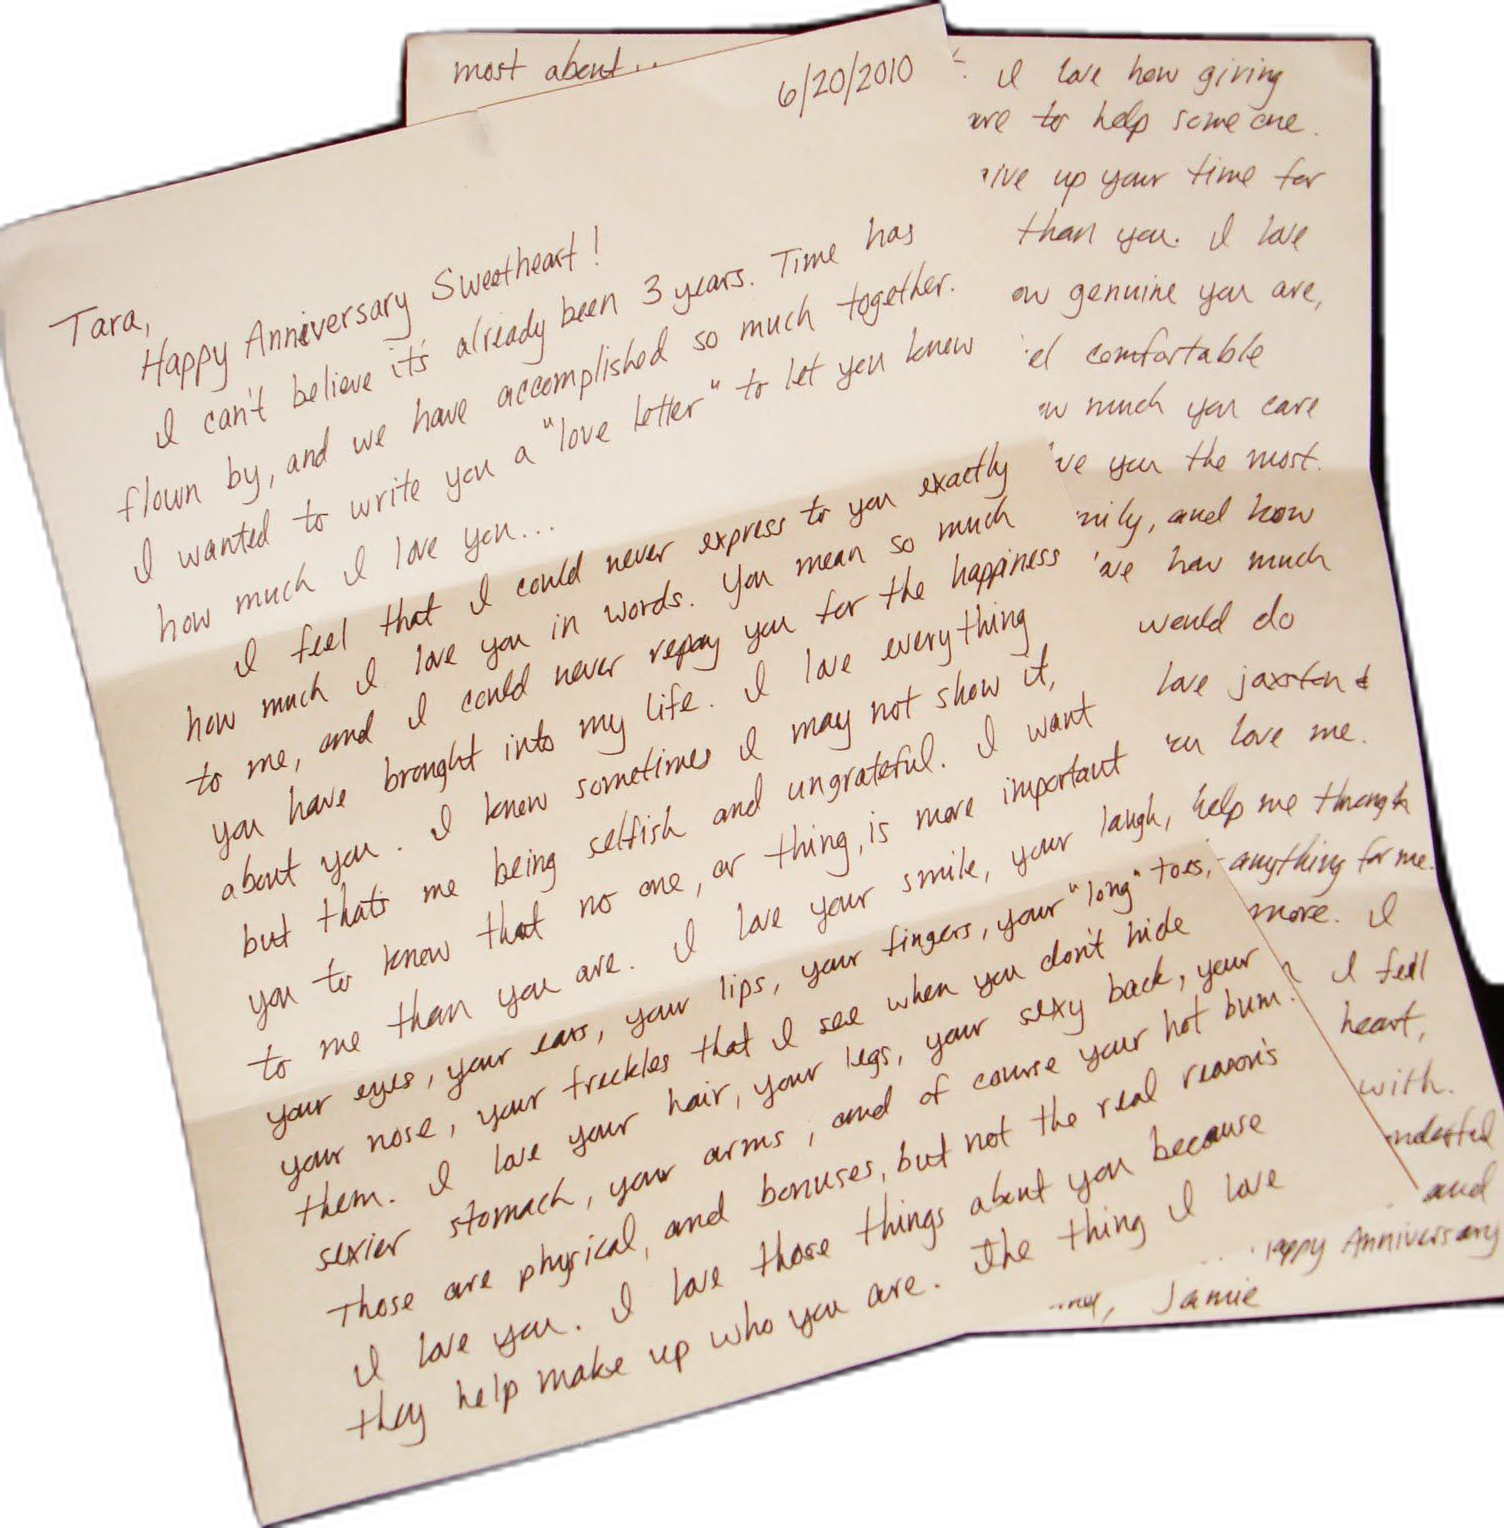 6/20/2010
Tara,
Happy Anniversary Sweetheart!
I can't believe it's already been 3 years. Time has
flown by, and we have accomplished so much together.
I wanted to write you a "love letter" to let you know
how much I love you...
I feel that I could never express to you exactly
how much I love you in words. You mean so much
to me, and I could never repay you for the happiness
you have brought into my life. I love everything
about you. I know sometimes I may not show it,
but thats me being selfish and ungrateful. I want
you to know that no one, or thing, is more important
to me than you are. I love your smile, your laugh,
your eyes, your ears, your lips, your fingers, your "long" toes,
your nose, your freckles that I see when you don't hide
them. I love your hair, your legs, your sexy back, your
sexier stomach, your arms, and of course your hot bum.
Those are physical, and bonuses, but not the real reason's
I love you. I love those things about you because
they help make up who you are. The thing I love
most about...
I love how giving
to help someone.
up your time for
than you. I love
genuine you are,
comfortable
much you care
you the most.
and how
how much
would do
love jaxston &
love me.
help me through
anything for me.
more. I
I feel
heart,
with.
and
Anniversary
Jamie